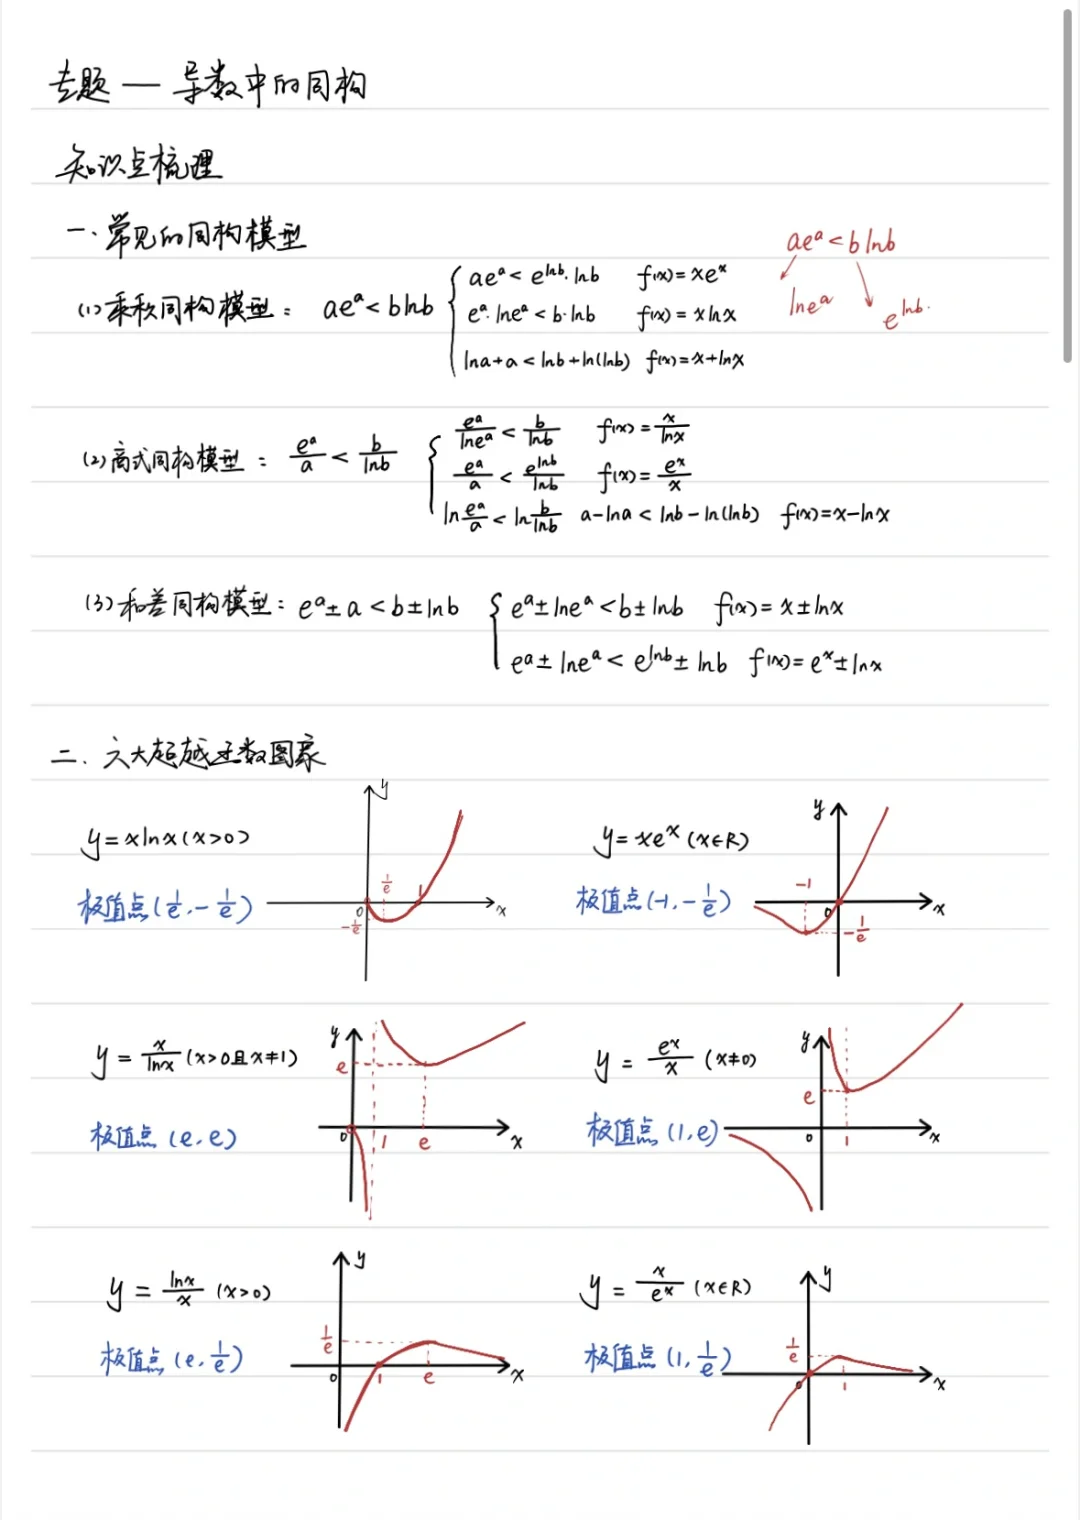 专题 — 导数中的同构
知识点梳理
一、常见的同构模型
ae^a < b lnb
lne^a e^lnb.
(1) 乘积同构模型： ae^a < blnb
ae^a < e^lnb · lnb f(x) = xe^x
e^a · lne^a < b · lnb f(x) = xlnx
lna + a < lnb + ln(lnb) f(x) = x + lnx
(2) 商式同构模型： e^a/a < b/lnb
e^a/lne^a < b/lnb f(x) = x/lnx
e^a/a < e^lnb/lnb f(x) = e^x/x
ln e^a/a < ln b/lnb a - lna < lnb - ln(lnb) f(x) = x - lnx
(3) 和差同构模型： e^a ± a < b ± lnb
e^a ± lne^a < b ± lnb f(x) = x ± lnx
e^a ± lne^a < e^lnb ± lnb f(x) = e^x ± lnx
二、六大超越函数图象
y = xlnx (x>0)
极值点 (1/e, -1/e)
y x 0 1/e 1 -1/e
y = xe^x (x∈R)
极值点 (-1, -1/e)
y x 0 -1 -1/e
y = x/lnx (x>0且x≠1)
极值点 (e, e)
y x 0 e 1 e
y = e^x/x (x≠0)
极值点 (1, e)
y x 0 e 1
y = lnx/x (x>0)
极值点 (e, 1/e)
y x 0 1/e 1 e
y = x/e^x (x∈R)
极值点 (1, 1/e)
y x 0 1/e 1